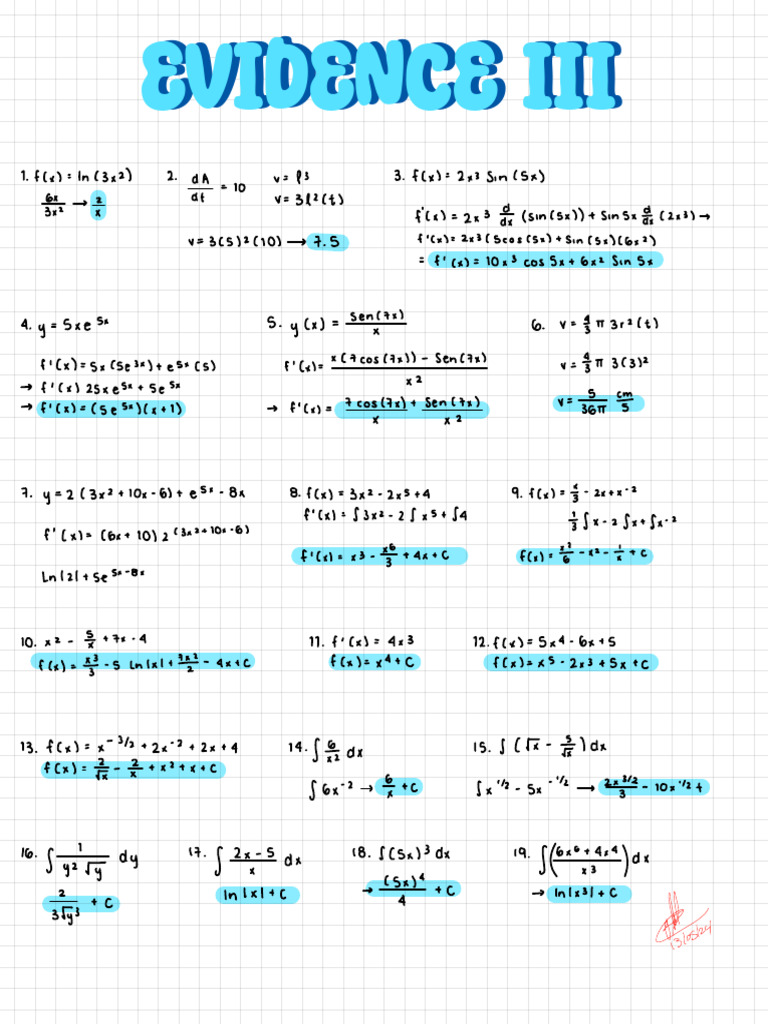 EVIDENCE III
1. f(x) = ln (3x²)
6x/3x² → 2/x
2. dA/dt = 10
v = l³
v = 3l²(t)
v = 3(5)²(10) → 7.5
3. f(x) = 2x³ Sin (5x)
f'(x) = 2x³ d/dx (sin(5x)) + Sin 5x d/dx (2x³) →
f'(x) = 2x³ (5cos(5x) + Sin(5x)(6x²)
= f'(x) = 10x³ cos 5x + 6x² Sin 5x
4. y = 5xe⁵ˣ
f'(x) = 5x (5e³ˣ) + e⁵ˣ (5)
→ f'(x) 25xe⁵ˣ + 5e⁵ˣ
→ f'(x) = (5e⁵ˣ)(x + 1)
5. y(x) = Sen(7x)/x
f'(x) = x(7cos(7x)) - Sen(7x)/x²
→ f'(x) = 7cos(7x)/x + Sen(7x)/x²
6. v = 4/3 π 3r²(t)
v = 4/3 π 3(3)²
v = 5/36π cm/5
7. y = 2(3x² + 10x - 6) + e⁵ˣ - 8x
f'(x) = (6x + 10) 2^(3x² + 10x - 6)
Ln|2| + 5e^(5x - 8x)
8. f(x) = 3x² - 2x⁵ + 4
f'(x) = ∫3x² - 2∫x⁵ + ∫4
f'(x) = x³ - x⁶/3 + 4x + C
9. f(x) = x/3 - 2x + x⁻²
1/3 ∫x - 2∫x + ∫x⁻²
f(x) = x²/6 - x² - 1/x + C
10. x² - 5/x + 7x - 4
f(x) = x³/3 - 5 Ln|x| + 7x²/2 - 4x + C
11. f'(x) = 4x³
f(x) = x⁴ + C
12. f(x) = 5x⁴ - 6x + 5
f(x) = x⁵ - 2x³ + 5x + C
13. f(x) = x^(-3/2) + 2x⁻² + 2x + 4
f(x) = 2/√x - 2/x + x² + x + C
14. ∫ 6/x² dx
∫6x⁻² → 6/x + C
15. ∫(√x - 5/√x) dx
∫x^(1/2) - 5x^(-1/2) → 2x^(3/2)/3 - 10x^(1/2) +
16. ∫ 1/y²√y dy
2/3√y³ + C
17. ∫ 2x - 5/x dx
ln|x| + C
18. ∫(5x)³ dx
→ (5x)⁴/4 + C
19. ∫(6x⁶ + 4x⁴/x³) dx
→ ln|x³| + C
13/05/24